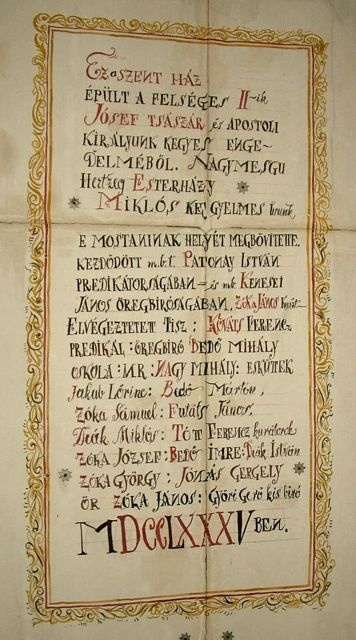 Ez a SZENT HÁZ
ÉPÜLT A FELSÉGES II-ik
JÓSEF TSÁSZÁR és APOSTOLI
KIRÁLYUNK KEGYES ENGE-
DELMÉBŐL. NAGYMESGU
Hertzeg ESTERHÁZY
MIKLÓS KEGYELMES Urunk
E MOSTANINAK HELYÉT MEGBŐVITETTE.
KEZDŐDÖTT m.b.t. PATONAY ISTVÁN
PREDIKÁTORSÁGÁBAN – és nb. KENESEI
JÁNOS ÖREGBIRÓSÁGÁBAN. ZÓKA JÁNOS
ELVÉGEZTETETT TISZ: KOVÁTS FERENCZ
PREDIKÁL: ÖREGBIRÓ BEDŐ MIHÁLY
OSKOLA: MR: NAGY MIHÁLY: ESKÜTEK
Jakab Lőrinc: Bedő Márton,
Zóka Sámuel: Futáls János.
Deák Miklós: TÓT FERENCZ kurátorok
ZÓKA JÓZSEF: BEDŐ IMRE: Deák István
ZÓKA GYÖRGY: JÓNÁS GERGELY
ÖR ZÓKA JÁNOS: Győri Gerő kis biró
MDCCLXXXV BEN.